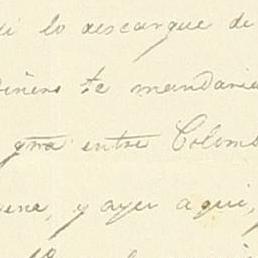 lo descargue de
te mandaria
qna entre Colomb
y ayer aqui,